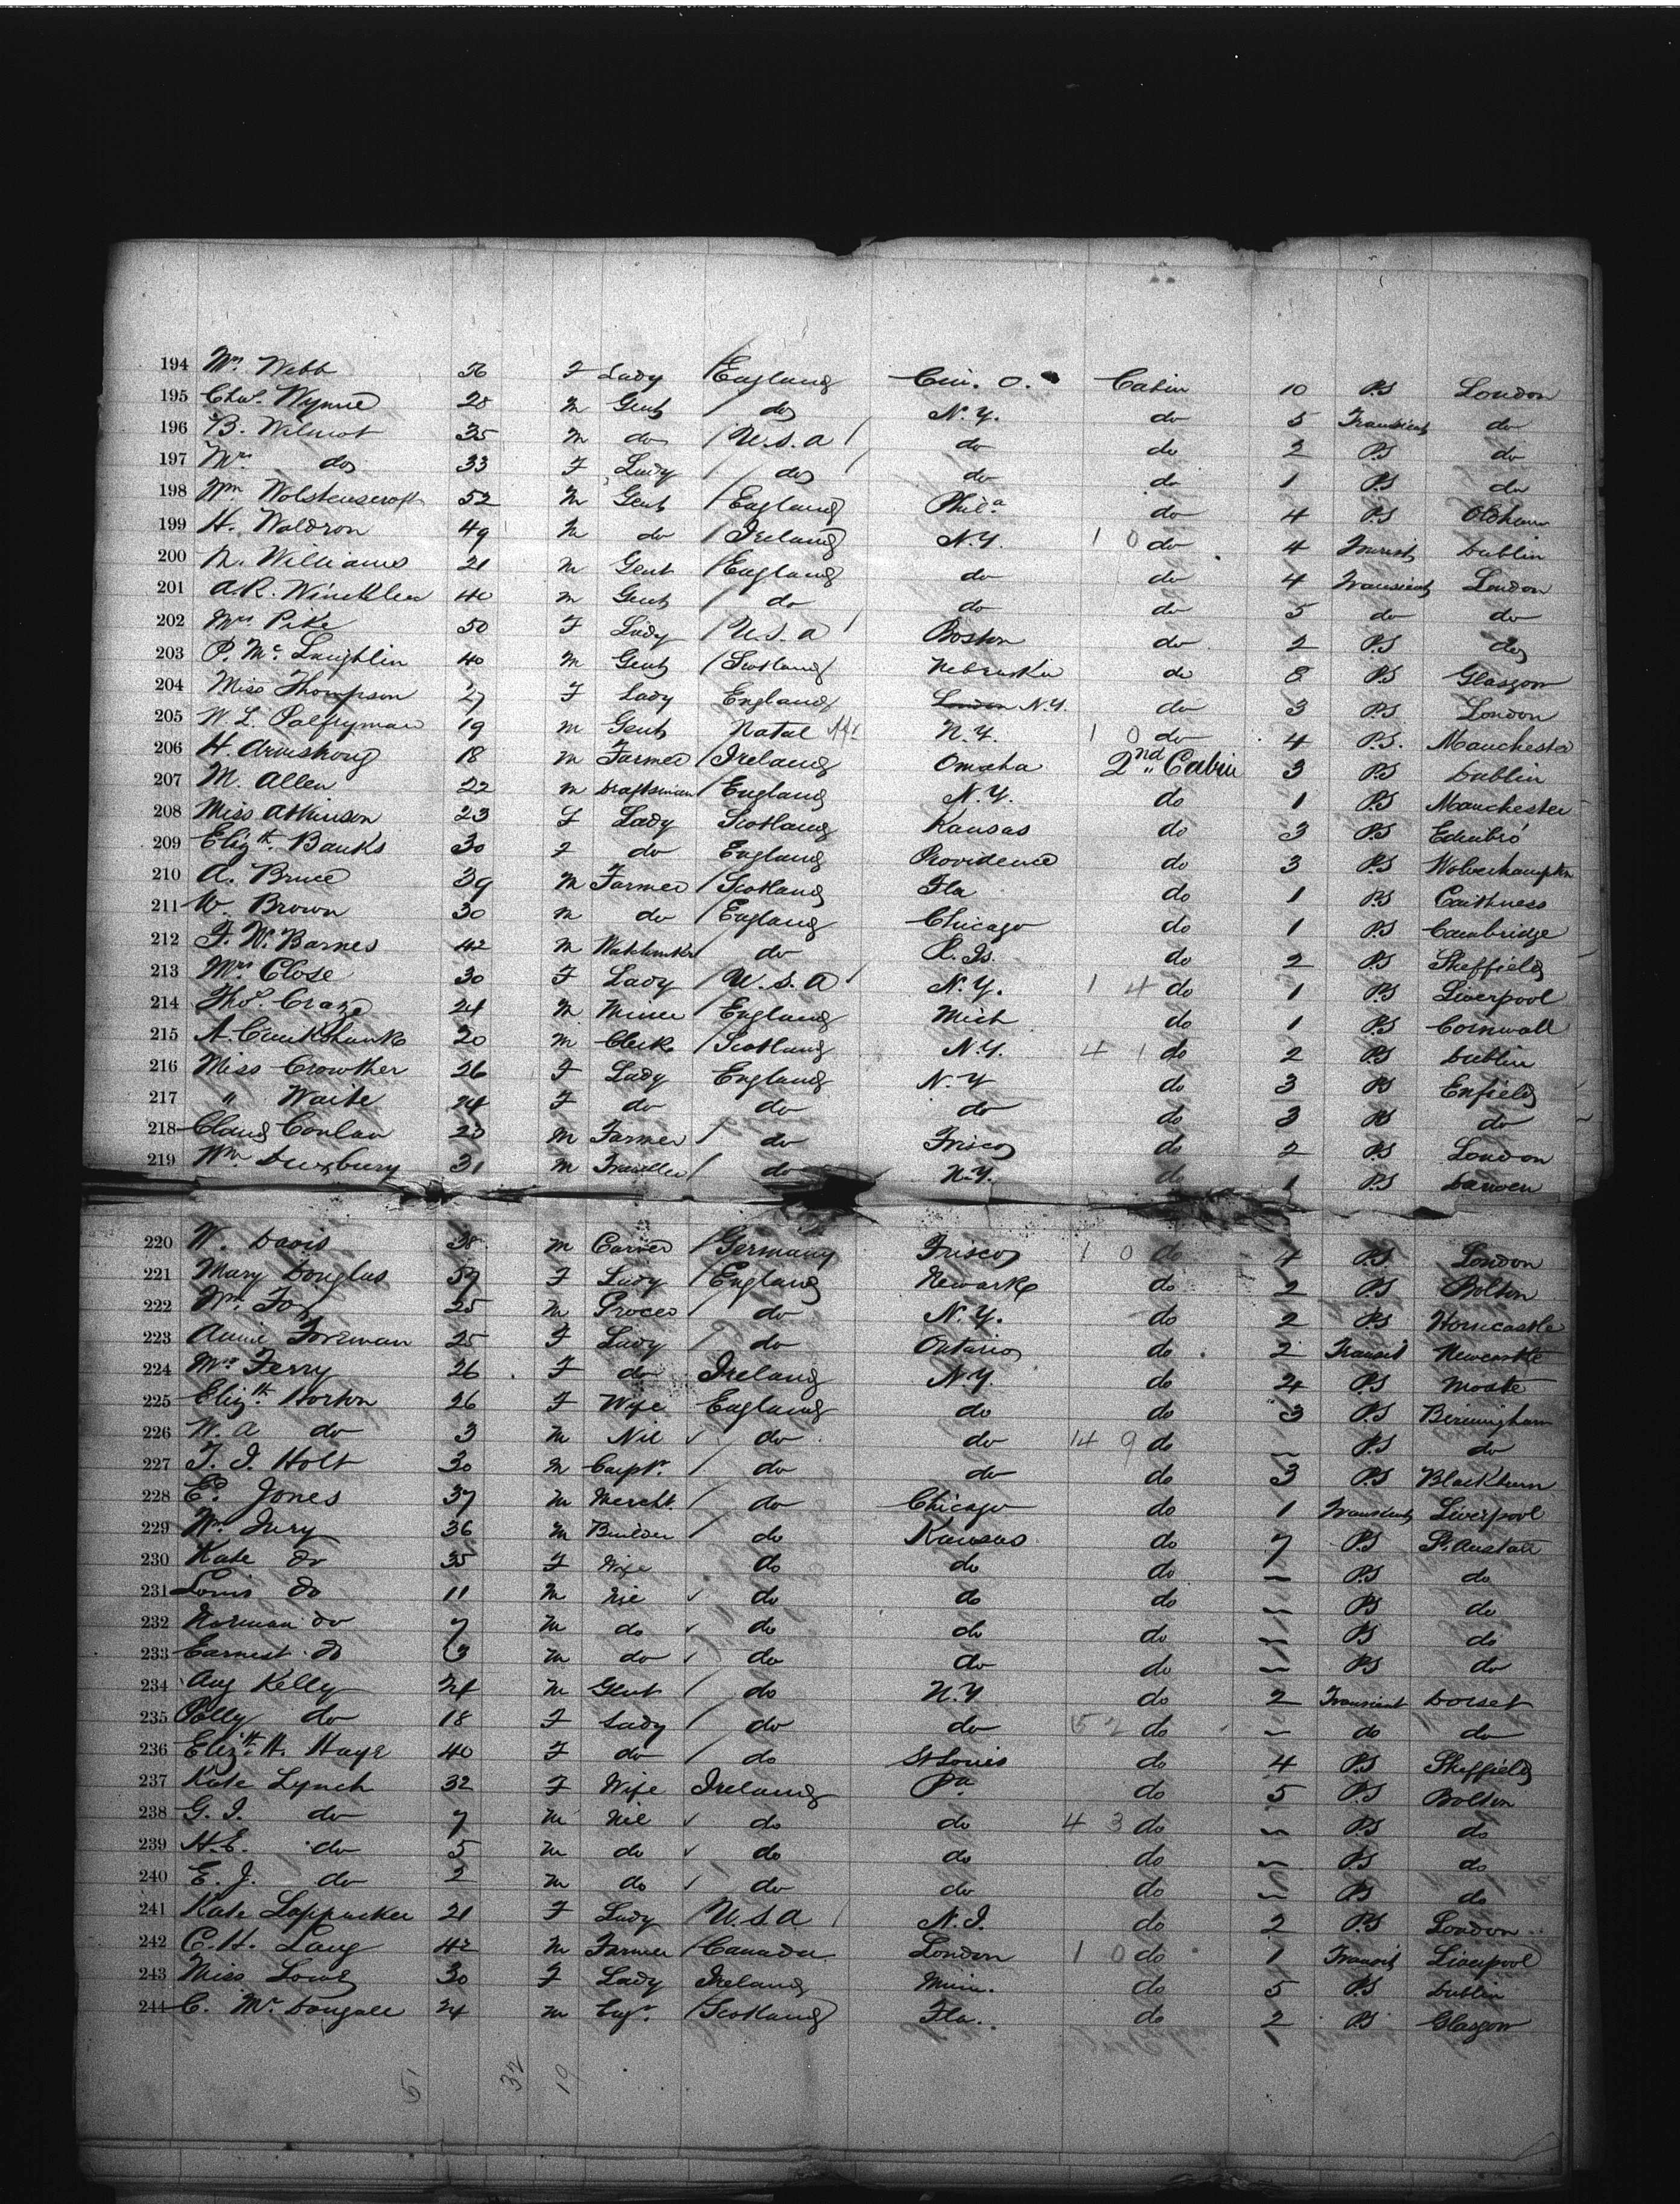 194 Mrs Webb 56 F Lady England Cin. O. Cabin 10 P.S London
195 Chas. Wynne 28 M Gent do N.Y. do 5 Transient do
196 B. Wilmot 35 M do U.S.A do do 2 P.S do
197 Mrs do 33 F Lady do do do 1 P.S do
198 Wm Wolstenscroft 52 M Gent England Phila do 4 P.S Oldham
199 H. Waldron 49 M do Ireland N.Y. 1 0 do 4 Tourist Dublin
200 N. Williams 21 M Gent England do do 4 Transient London
201 A.R. Winckler 40 M Gent do do do 5 do do
202 Mrs Pike 50 F Lady U.S.A Boston do 2 P.S do
203 P. McLaughlin 40 M Gent Scotland Nebraska do 8 P.S Glasgow
204 Miss Thompson 27 F Lady England London N.Y. do 3 P.S London
205 W.L. Palfryman 19 M Gent Natal N.Y. 1 0 do 4 P.S. Manchester
206 H. Armstrong 18 M Farmer Ireland Omaha 2nd Cabin 3 P.S Dublin
207 M. Allen 22 M Draftsman England N.Y. do 1 P.S Manchester
208 Miss Atkinson 23 F Lady Scotland Kansas do 3 P.S Edinbro
209 Elizth Banks 30 F do England Providence do 3 P.S Wolverhampton
210 A. Bruce 39 M Farmer Scotland Fla do 1 P.S Caithness
211 W. Brown 30 M do England Chicago do 1 P.S Cambridge
212 F.W. Barnes 42 M do R. Is. do 2 P.S Sheffield
213 Mrs Close 30 F Lady U.S.A N.Y. 1 4 do 1 P.S Liverpool
214 Thos. Craze 24 M Miner England Mich do 1 P.S Cornwall
215 A. Cruikshank 20 M Clerk Scotland N.Y. 4 1 do 2 P.S Dublin
216 Miss Crowther 26 F Lady England N.Y do 3 P.S Enfield
217 " Waite 24 F do do do do 3 P.S do
218 Conlan M Farmer do Frisco do 2 P.S London
219 Wm Duxbury 31 M Traveller do N.Y. do 1 P.S Darwen
220 W. Davis 38 M Carver Germany Frisco 1 0 do 4 P.S. London
221 Mary Douglas F Lady England Newark do 2 P.S Bolton
222 Wm. Fox 25 M Grocer do N.Y. do 2 P.S Horncastle
223 Annie Foreman 25 F Lady do Ontario do 2 Transit Newcastle
224 Mrs Ferry 26 F do Ireland N.Y. do P.S
225 Elizth Horton 26 F Wife England do do 3 P.S Birmingham
226 W.A do 3 M Nil do do 14 9 do – P.S do
227 T.J. Holt 30 M Carptr. do do do 3 P.S Blackburn
228 Ed. Jones 37 M Mercht. do Chicago do 1 Transient Liverpool
229 Wm. Jury 36 M Builder do Kansas do 7 P.S St. Austell
230 Kate do 35 F Wife do do do – P.S do
231 Louis do 11 M Nil do do do – P.S do
232 Norman do 7 M do do do do – P.S do
233 Earnest do 3 M do do do do – P.S do
234 Aug Kelly 24 M Gent do N.Y do 2 Transient Dorset
235 Polly do 18 F Lady do do 5 2 do – do do
236 Elizth H. Haye 40 F do do St Louis do 4 P.S Sheffield
237 Kate Lynch 32 F Wife Ireland Pa. do 5 P.S Bolton
238 G.J. do 7 M Nil do do 4 3 do – P.S do
239 H.E. do 5 M do do do do – P.S do
240 E.J. do 2 M do do do do – P.S do
241 Kate 21 F Lady U.S.A N.J. do 2 P.S London
242 C.H. Lang 42 M Farmer Canada London 1 0 do 1 Transit Liverpool
243 Miss Lowe 30 F Lady Ireland Minn. do 5 P.S Dublin
244 C. McDougall 24 M Engr. Scotland Fla. do 2 P.S Glasgow
51 32 19